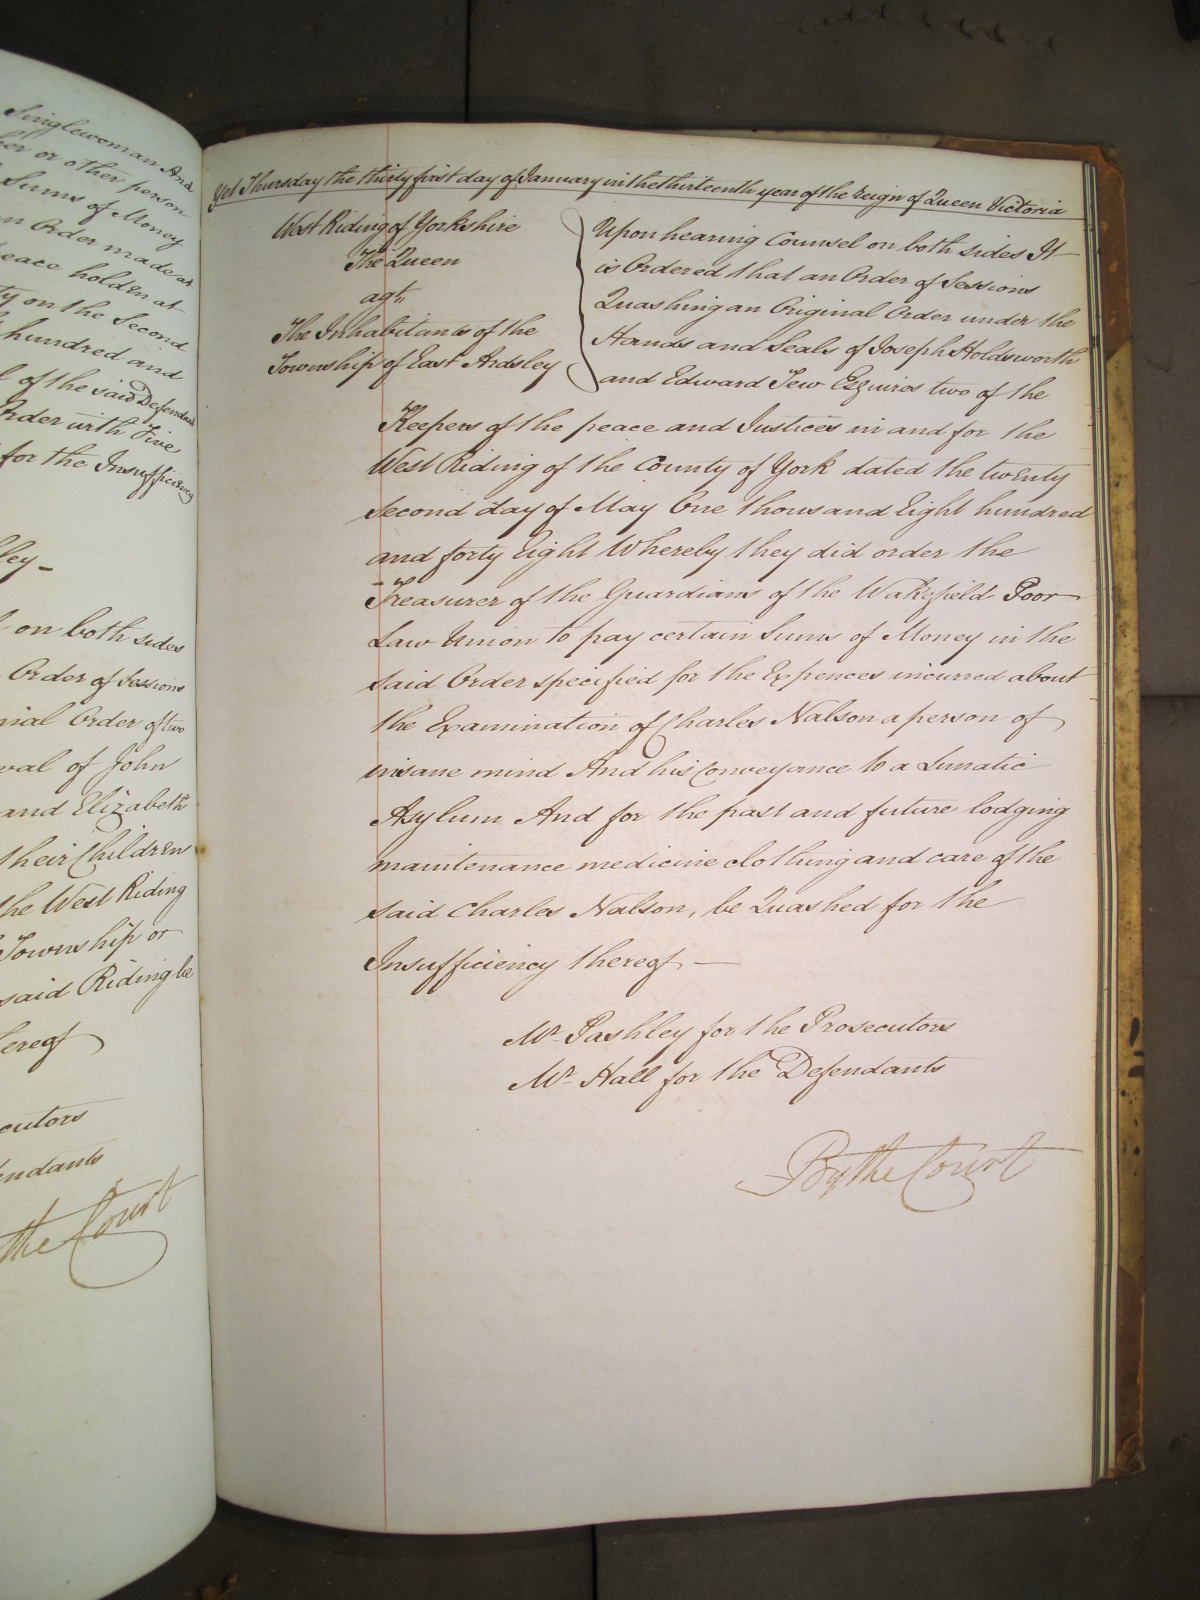 Singlewoman And
her or other person
Sums of Money
an Order made at
peace holden at
ty on the Second
hundred and
l of the said Defendant
Order with Five
for the Insufficiency
ley -
l on both sides
Order of Sessions
inal Order of two
val of John
and Elizabeth
their Children
the West Riding
Township or
said Riding be
hereof
ecutors
endants
the Court
Yet Thursday the thirty first day of January in the thirteenth year of the Reign of Queen Victoria
West Riding of Yorkshire
The Queen
agt
The Inhabitants of the
Township of East Ardsley
Upon hearing Counsel on both sides It
is Ordered that an Order of Sessions
Quashing an Original Order under the
Hands and Seals of Joseph Holdsworth
and Edward Tew Esquires two of the
Keepers of the peace and Justices in and for the
West Riding of the County of York dated the twenty
second day of May One thousand Eight hundred
and forty Eight Whereby they did order the
Treasurer of the Guardians of the Wakefield Poor
Law Union to pay certain Sums of Money in the
said Order specified for the Expences incurred about
the Examination of Charles Nalson a person of
insane mind And his Conveyance to a Lunatic
Asylum And for the past and future lodging
maintenance medicine clothing and care of the
said Charles Nalson, be Quashed for the
Insufficiency thereof -
Mr Pashley for the Prosecutors
Mr Hall for the Defendants
By the Court